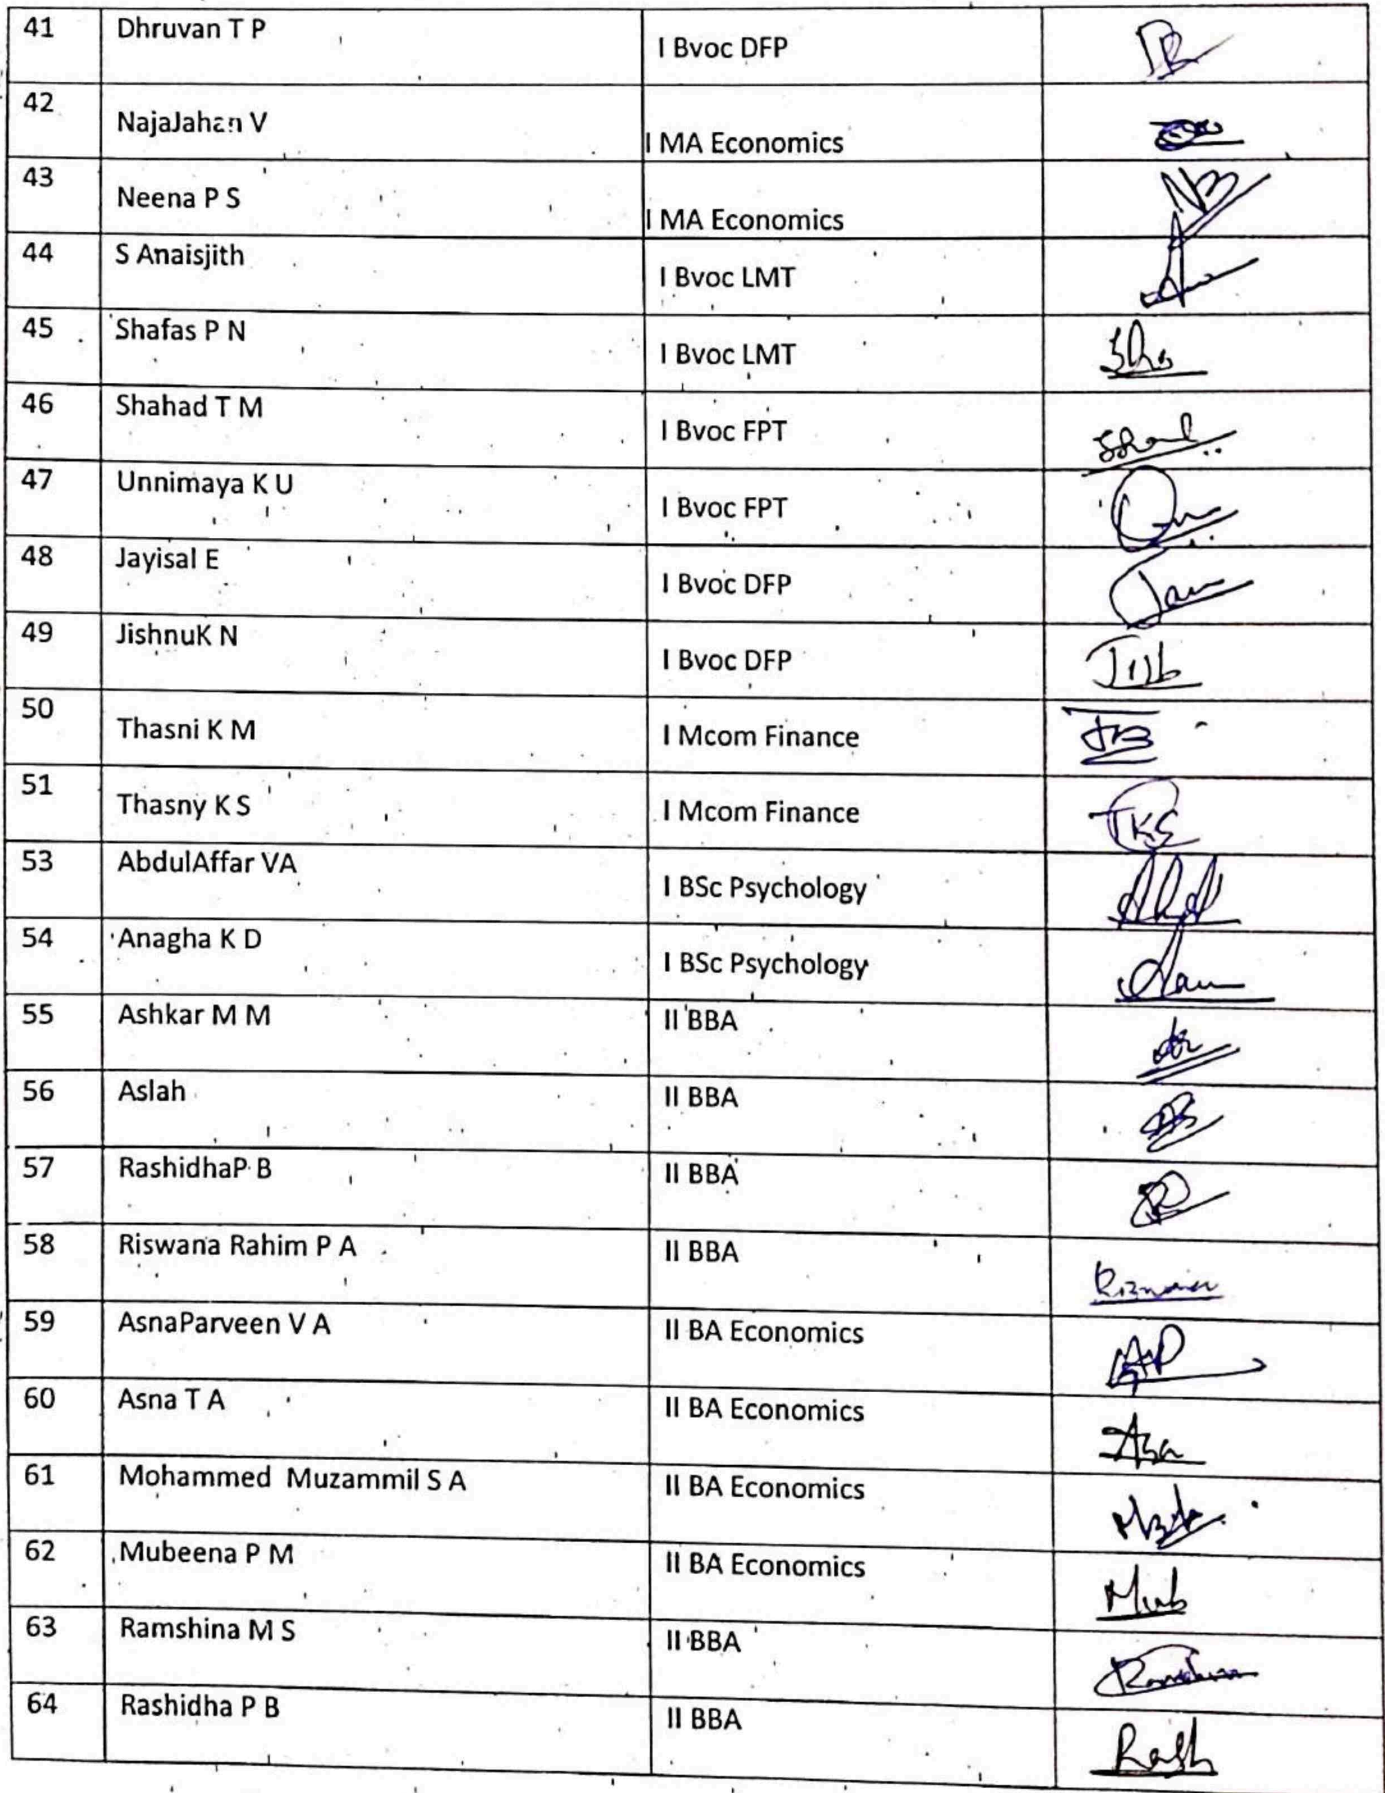 41 Dhruvan T P I Bvoc DFP
42 NajaJahan V I MA Economics
43 Neena P S I MA Economics
44 S Anaisjith I Bvoc LMT
45 Shafas P N I Bvoc LMT
46 Shahad T M I Bvoc FPT
47 Unnimaya K U I Bvoc FPT
48 Jayisal E I Bvoc DFP
49 JishnuK N I Bvoc DFP
50 Thasni K M I Mcom Finance
51 Thasny K S I Mcom Finance TKS
53 AbdulAffar VA I BSc Psychology
54 Anagha K D I BSc Psychology
55 Ashkar M M II BBA
56 Aslah II BBA
57 RashidhaP B II BBA
58 Riswana Rahim P A II BBA
59 AsnaParveen V A II BA Economics
60 Asna T A II BA Economics
61 Mohammed Muzammil S A II BA Economics
62 Mubeena P M II BA Economics Mub
63 Ramshina M S II BBA
64 Rashidha P B II BBA Rash